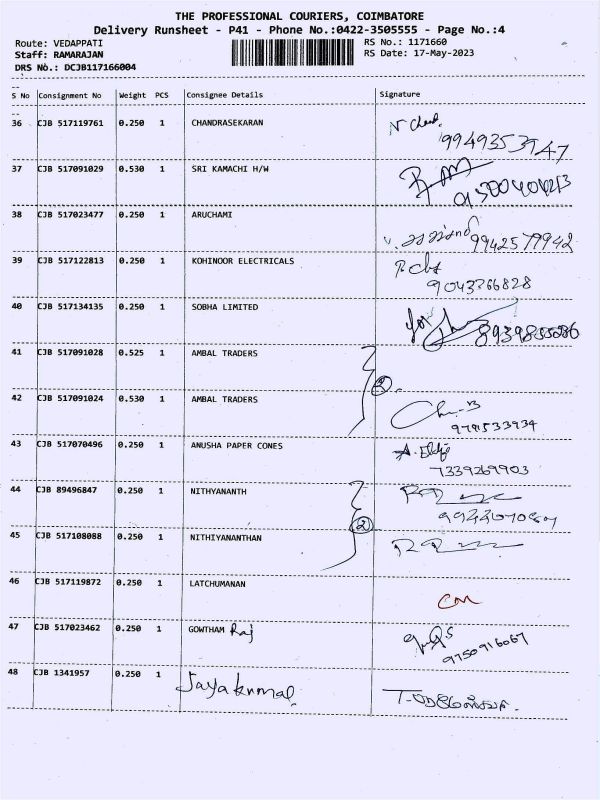 THE PROFESSIONAL COURIERS, COIMBATORE
Delivery Runsheet - P41 - Phone No.:0422-3505555 - Page No.:4
Route: VEDAPPATI RS No.: 1171660
Staff: RAMARAJAN RS Date: 17-May-2023
DRS No.: DCJB117166004
S No Consignment No Weight PCS Consignee Details Signature
36 CJB 517119761 0.250 1 CHANDRASEKARAN
9949353947
37 CJB 517091029 0.530 1 SRI KAMACHI H/W
38 CJB 517023477 0.250 1 ARUCHAMI
9942579942
39 CJB 517122813 0.250 1 KOHINOOR ELECTRICALS
9043766828
40 CJB 517134135 0.250 1 SOBHA LIMITED
for 8939855286
41 CJB 517091028 0.525 1 AMBAL TRADERS
2
42 CJB 517091024 0.530 1 AMBAL TRADERS
43 CJB 517070496 0.250 1 ANUSHA PAPER CONES
7339269903
44 CJB 89496847 0.250 1 NITHYANANTH
2
45 CJB 517108088 0.250 1 NITHIYANANTHAN
46 CJB 517119872 0.250 1 LATCHUMANAN
CM
47 CJB 517023462 0.250 1 GOWTHAM Raj
9750916067
48 CJB 1341957 0.250 1 Jayakumal